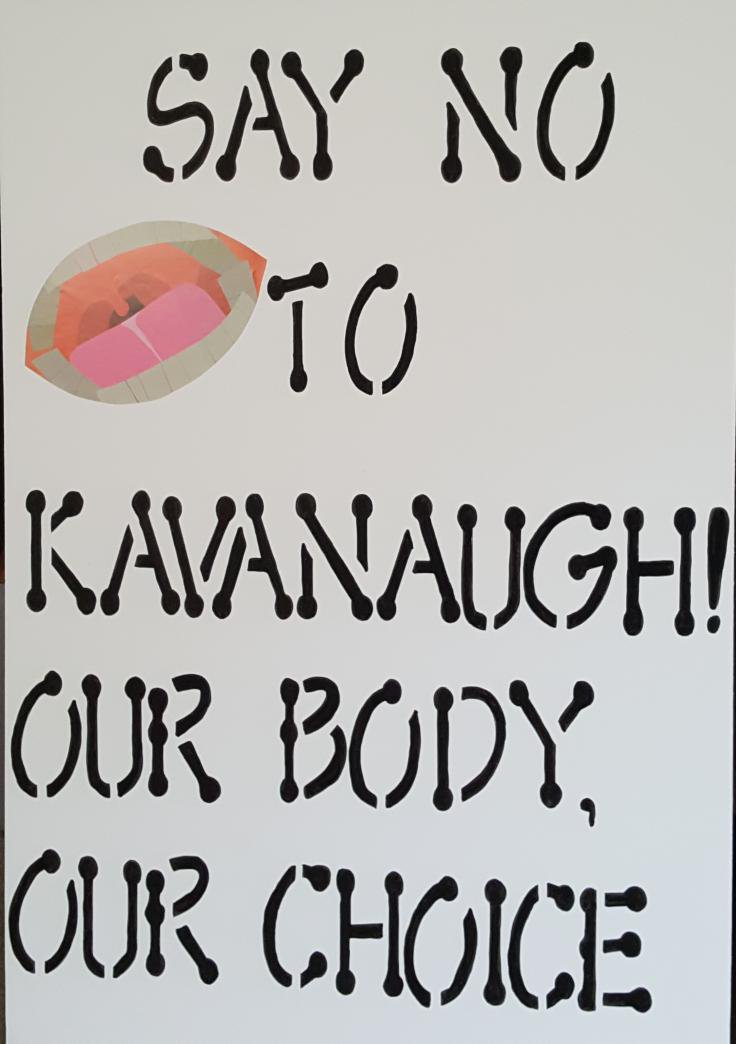 SAY NO
TO
KAVANAUGH!
OUR BODY,
OUR CHOICE